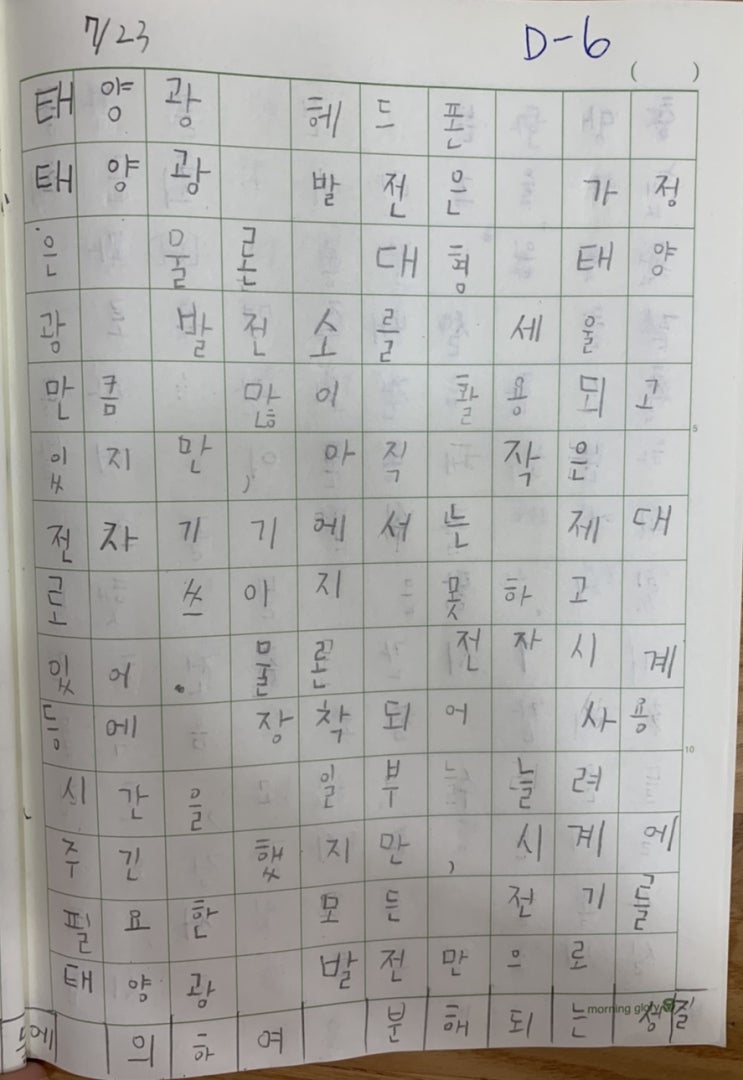 7/23
D-6
( )
태양광 헤드폰
태양광 발전은 가정
은 물론 대형 태양
광 발전소를 세울
만큼 많이 활용되고
있지만, 아직 작은
전자기기에서는 제대
로 쓰이지 못하고
있어. 물론 전자시계
등에 장착되어 사용
시간을 일부 늘려
주긴 했지만, 시계에
필요한 모든 전기를
태양광 발전만으로
의하여 분해되는 성질
morning glory
5
10